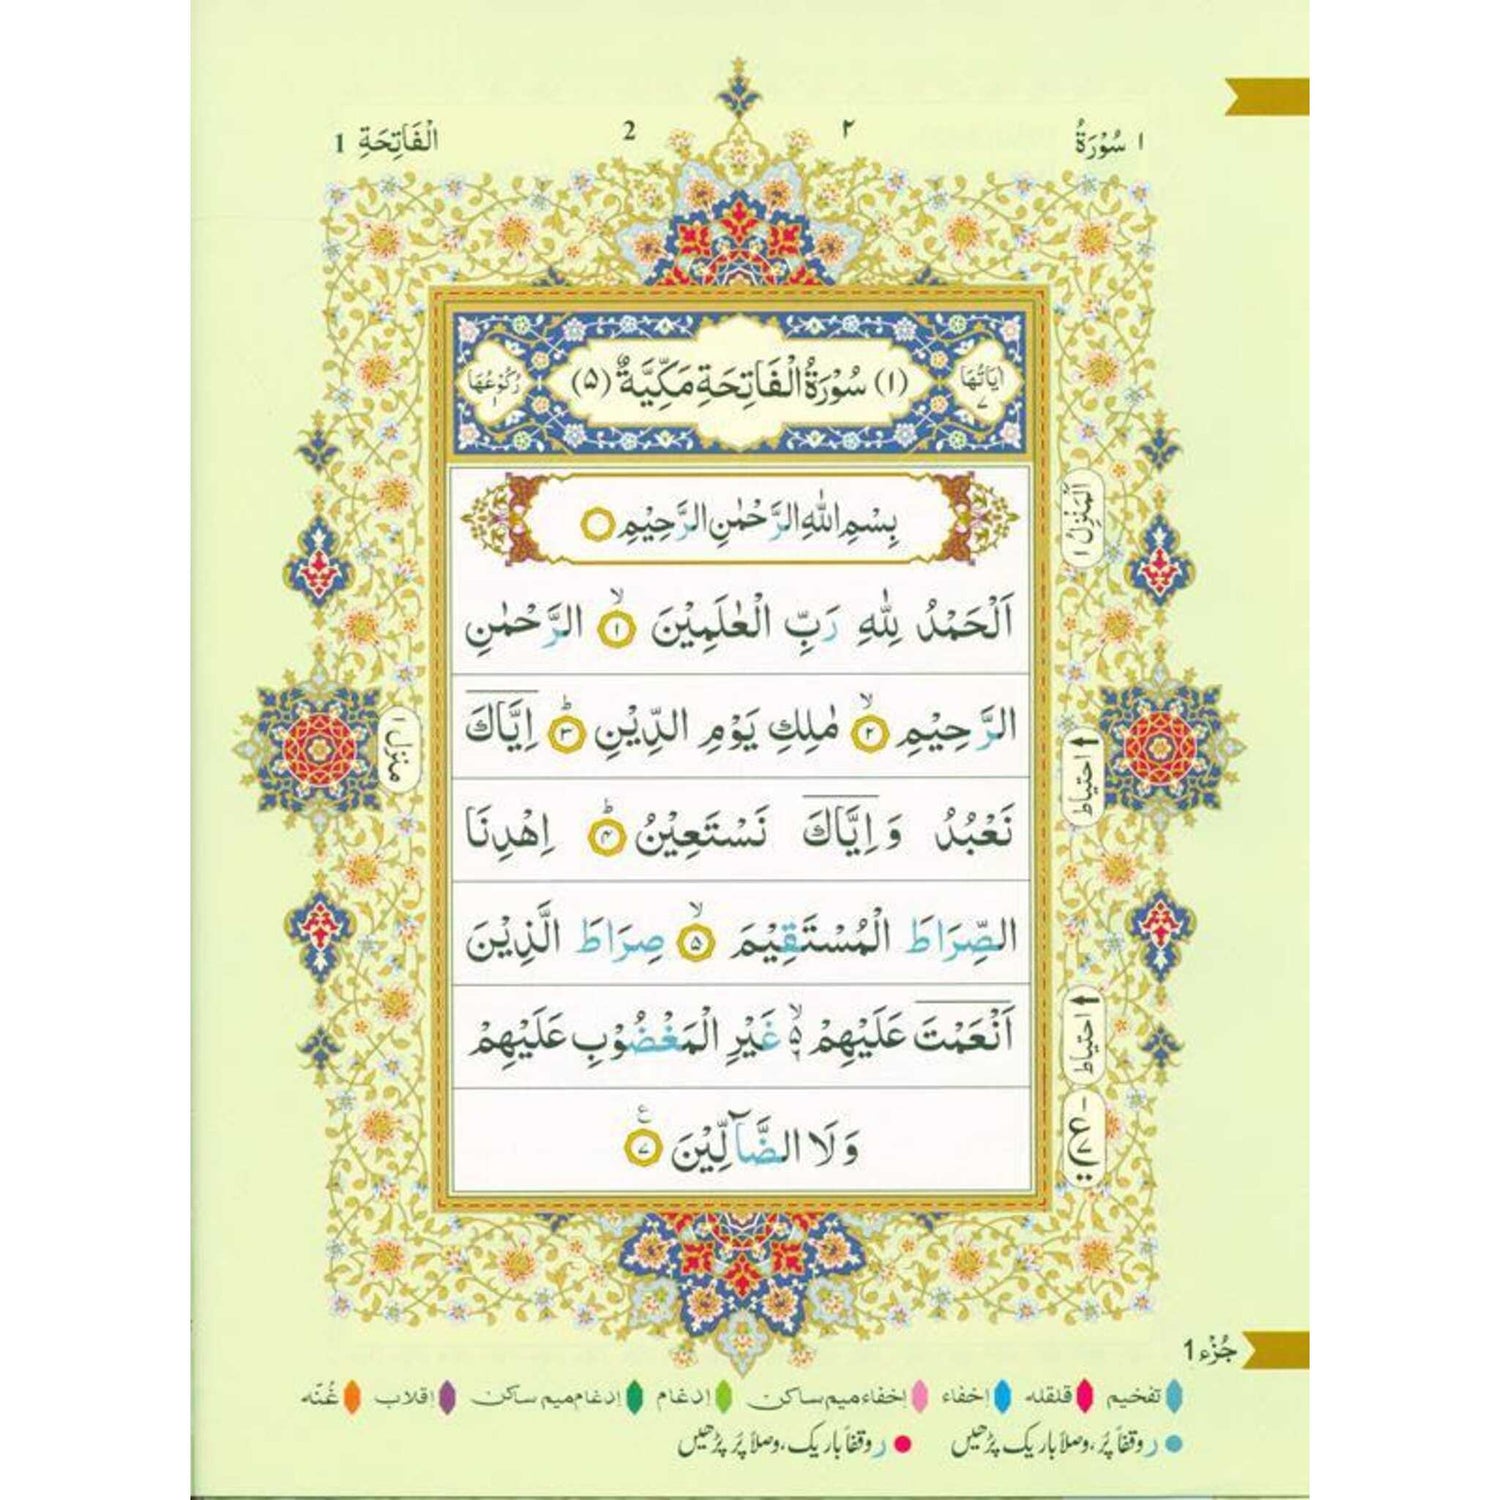 ١ سُوْرَةُ ٢ 2 الْفَاتِحَةِ 1
اٰيَاتُهَا ٧ (١) سُوْرَةُ الْفَاتِحَةِ مَكِّيَّةٌ (٥) رُكُوْعُهَا ١
بِسْمِ اللّٰهِ الرَّحْمٰنِ الرَّحِيْمِ
اَلْحَمْدُ لِلّٰهِ رَبِّ الْعٰلَمِيْنَ ۙ ١ الرَّحْمٰنِ
الرَّحِيْمِ ۙ ٢ مٰلِكِ يَوْمِ الدِّيْنِ ؕ ٣ اِيَّاكَ
نَعْبُدُ وَ اِيَّاكَ نَسْتَعِيْنُ ؕ ۴ اِهْدِنَا
الصِّرَاطَ الْمُسْتَقِيْمَ ۙ ۵ صِرَاطَ الَّذِيْنَ
اَنْعَمْتَ عَلَيْهِمْ ۙ۬ ۵ غَيْرِ الْمَغْضُوْبِ عَلَيْهِمْ
وَلَا الضَّآلِّيْنَ ٧ ع
اَلْمَنْزِلُ ١
احتیاط
احتیاط
منزل ١
جُزْء 1
تفخیم قلقله اِخفاء اِخفاء میم ساکن اِدغام اِدغام میم ساکن اِقلاب غُنّه
ر وقفاً پُر، وصلاً باریک پڑھیں ر وقفاً باریک، وصلاً پُر پڑھیں